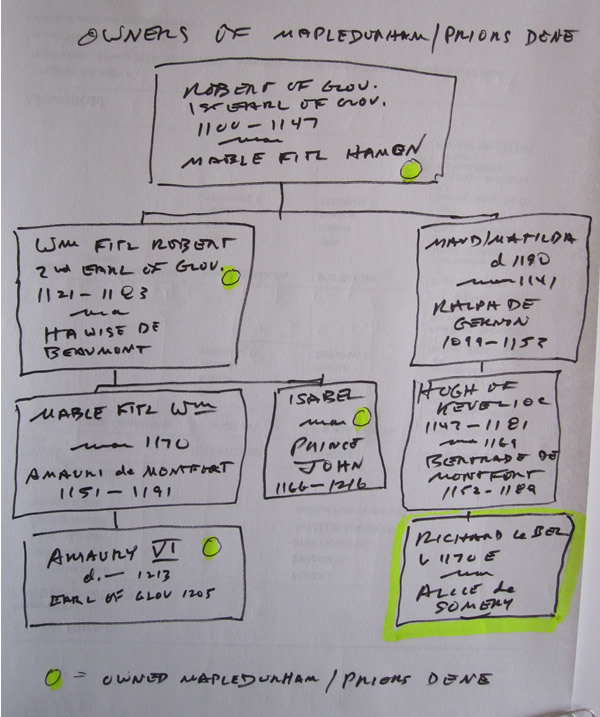 OWNERS OF MAPLEDURHAM/PRIORS DENE
ROBERT OF GLOU.
1ST EARL OF GLOU.
1100 - 1147
mar
MABLE FITZ HAMEN
Wm FITZ ROBERT
2nd EARL OF GLOU.
1121 - 1183
mar
HAWISE DE
BEAUMONT
MAUD/MATILDA
d 1190
mar 1141
RALPH DE
GERNON
1099 - 1153
MABLE FITZ Wm
mar 1170
AMAURI de MONTFORT
1151 - 1191
ISABEL
mar
PRINCE
JOHN
1166 - 1216
HUGH OF
KEVELIOC
1147 - 1181
mar 1169
BERTRADE DE
MONTFORT
1152 - 1189
AMAURY VI
d. - 1213
EARL OF GLOU 1205
RICHARD le BEL
b 1170 E
mar
ALICE de
SOMERY
= OWNED MAPLEDURHAM/PRIORS DENE